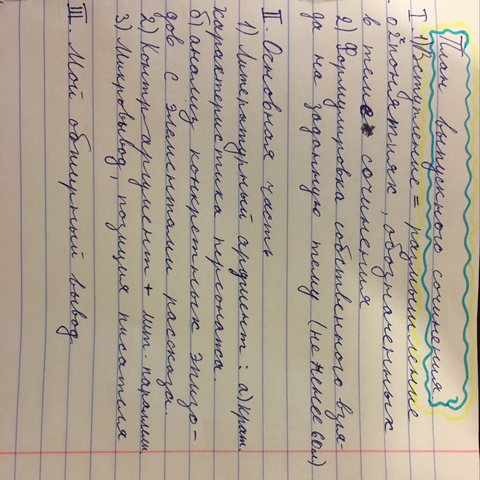 План выпускного сочинения.
I. 1) Вступление = размышление
о понятиях, обозначенных
в теме сочинения
2) Формулировка собственного взгля-
да на заданную тему (не менее 60 сл)
II. Основная часть
1) Литературный аргумент: а) крат.
характеристика персонажа.
б) анализ конкретных эпизо-
дов с элементами рассказа.
2) Контр-аргумент + лит. параллели
3) Микровывод, позиция писателя
III. Мой обширный вывод